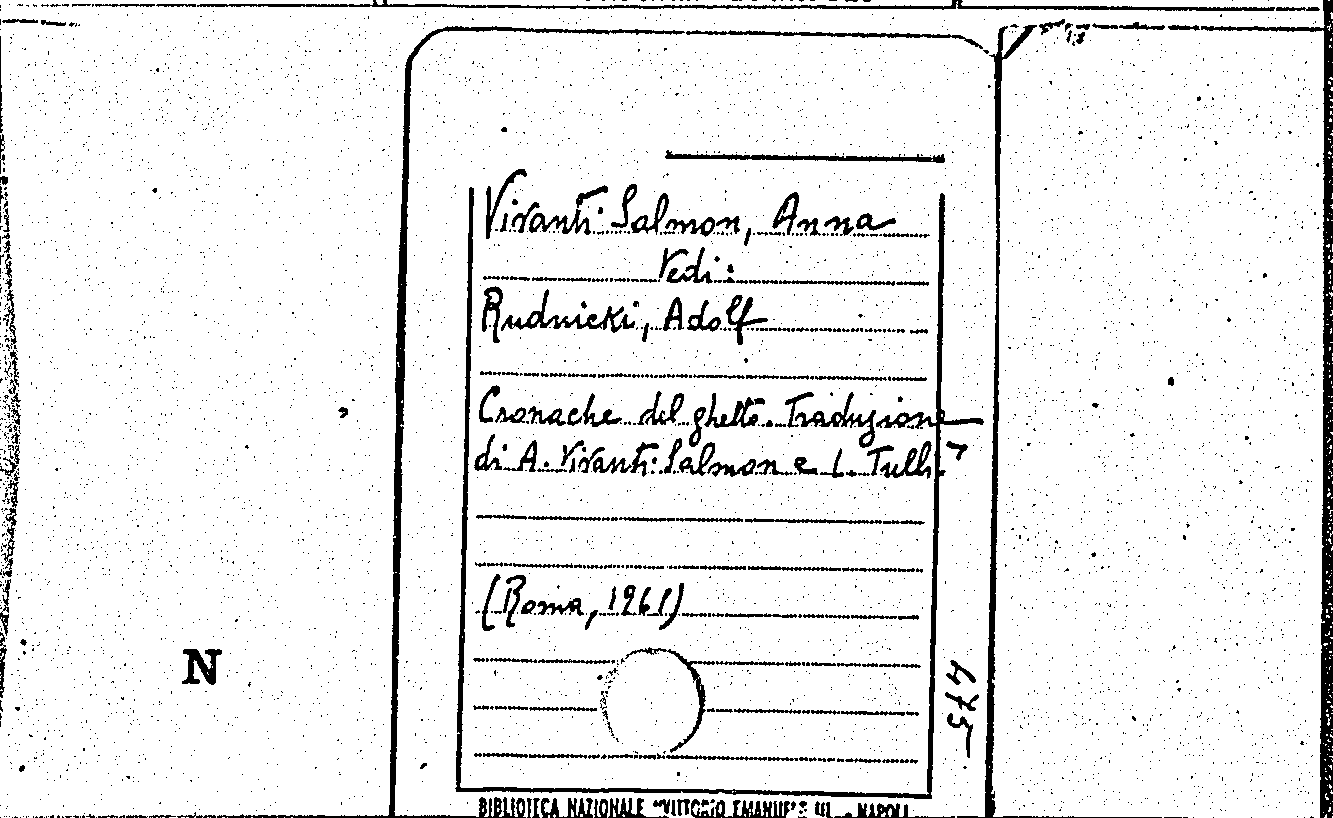 Vivanti Salmon, Anna
Vedi:
Rudnicki, Adolf
Cronache del ghetto. Traduzione
di A. Vivanti Salmon e L. Tulli.
(Roma, 1961)
N
475
BIBLIOTECA NAZIONALE "VITTORIO EMANUELE III" - NAPOLI